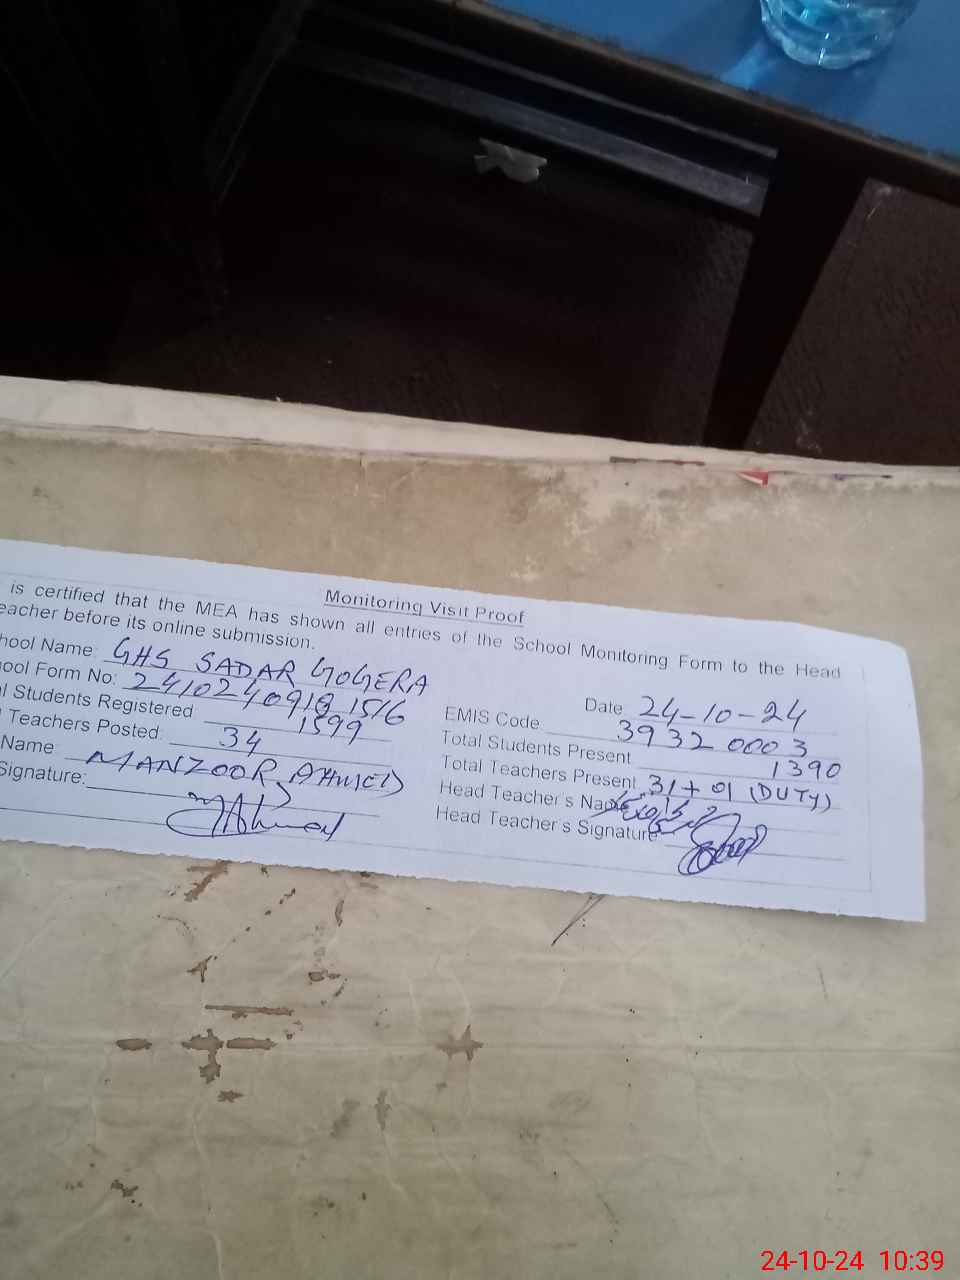 Monitoring Visit Proof
is certified that the MEA has shown all entries of the School Monitoring Form to the Head
eacher before its online submission.
hool Name: GHS SADAR GOGERA
Date 24-10-24
ool Form No: 2410240918 1516
EMIS Code 39320003
l Students Registered 1599
Total Students Present 1390
Teachers Posted: 34
Total Teachers Present 31 + 01 (DUTY)
Name: MANZOOR AHMED
Head Teacher's Name
Signature:
Head Teacher's Signature
24-10-24 10:39